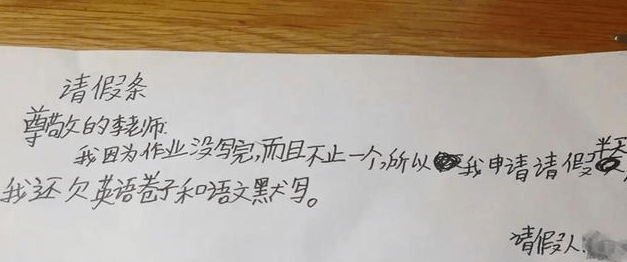 请假条
尊敬的李老师:
我因为作业没写完,而且不止一个,所以我申请请假半天,
我还欠英语卷子和语文默写。
请假人: